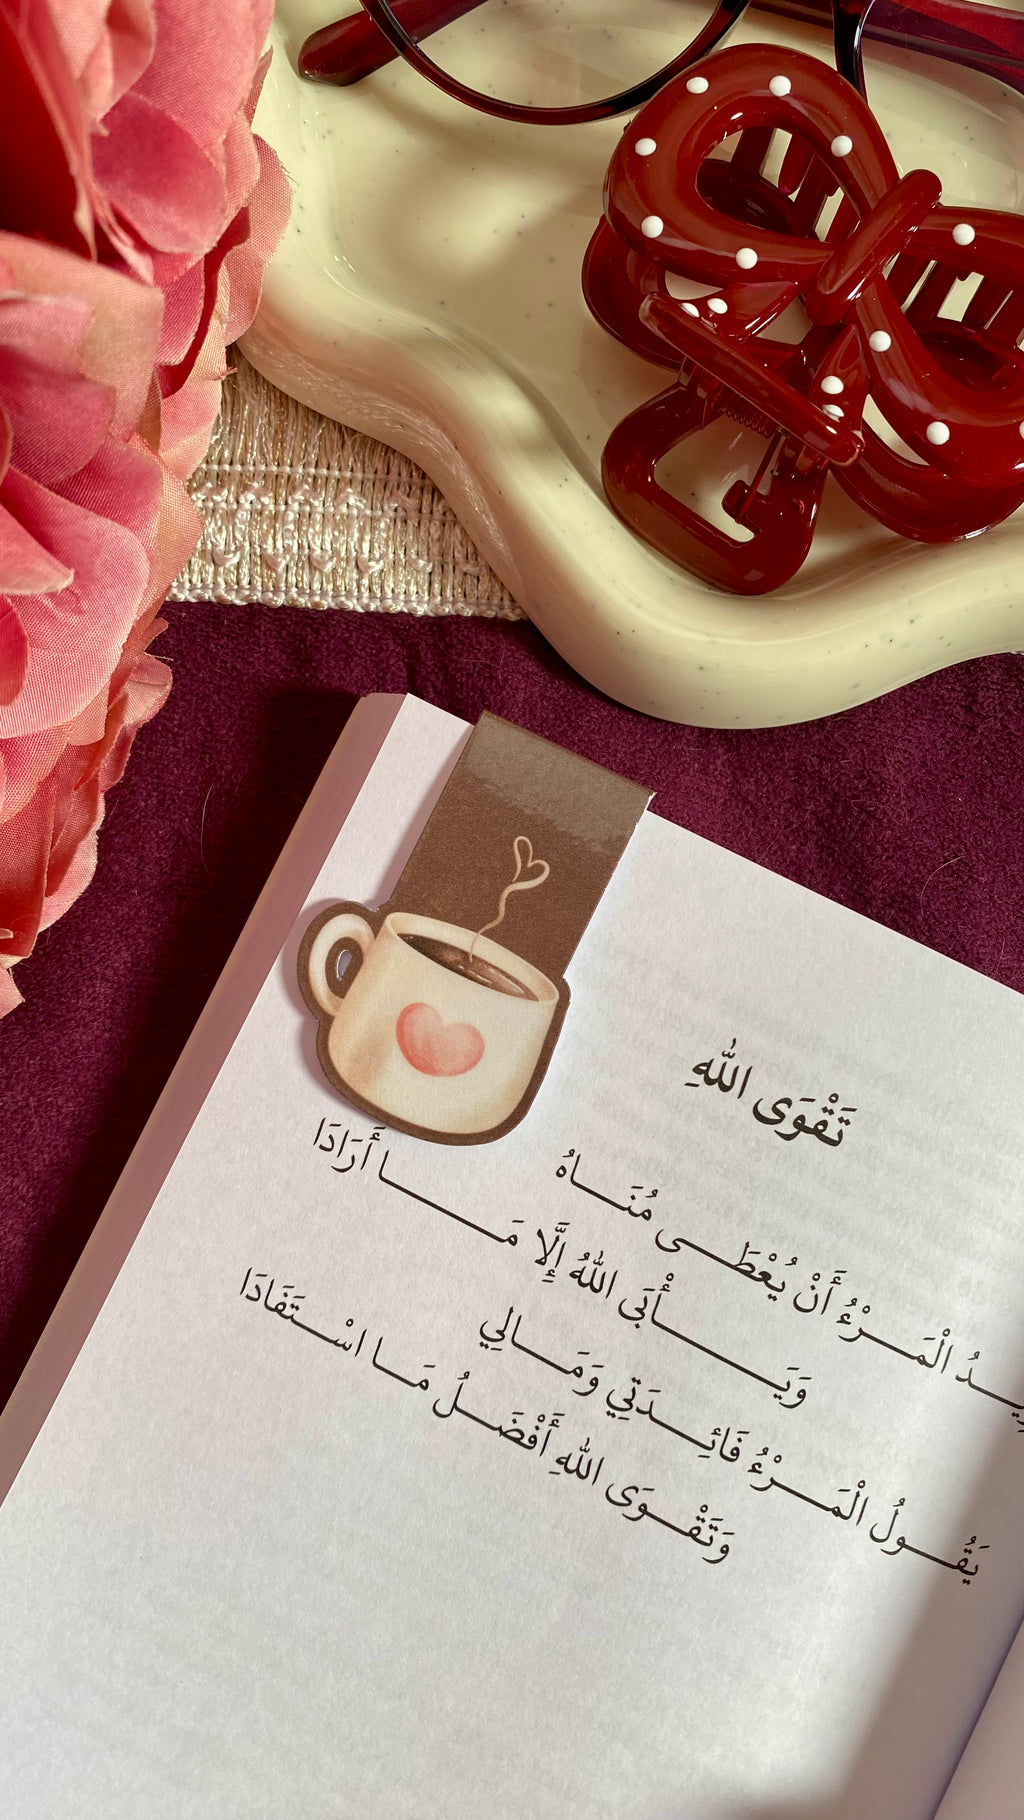 تَقْوَى اللهِ
ـرِيـدُ الْمَـرْءُ أَنْ يُعْطَـى مُنَـاهُ
وَيَـأْبَى اللهُ إِلَّا مَـا أَرَادَا
يَقُـولُ الْمَـرْءُ فَائِـدَتِي وَمَـالِي
وَتَقْـوَى اللهِ أَفْضَـلُ مَـا اسْـتَفَادَا